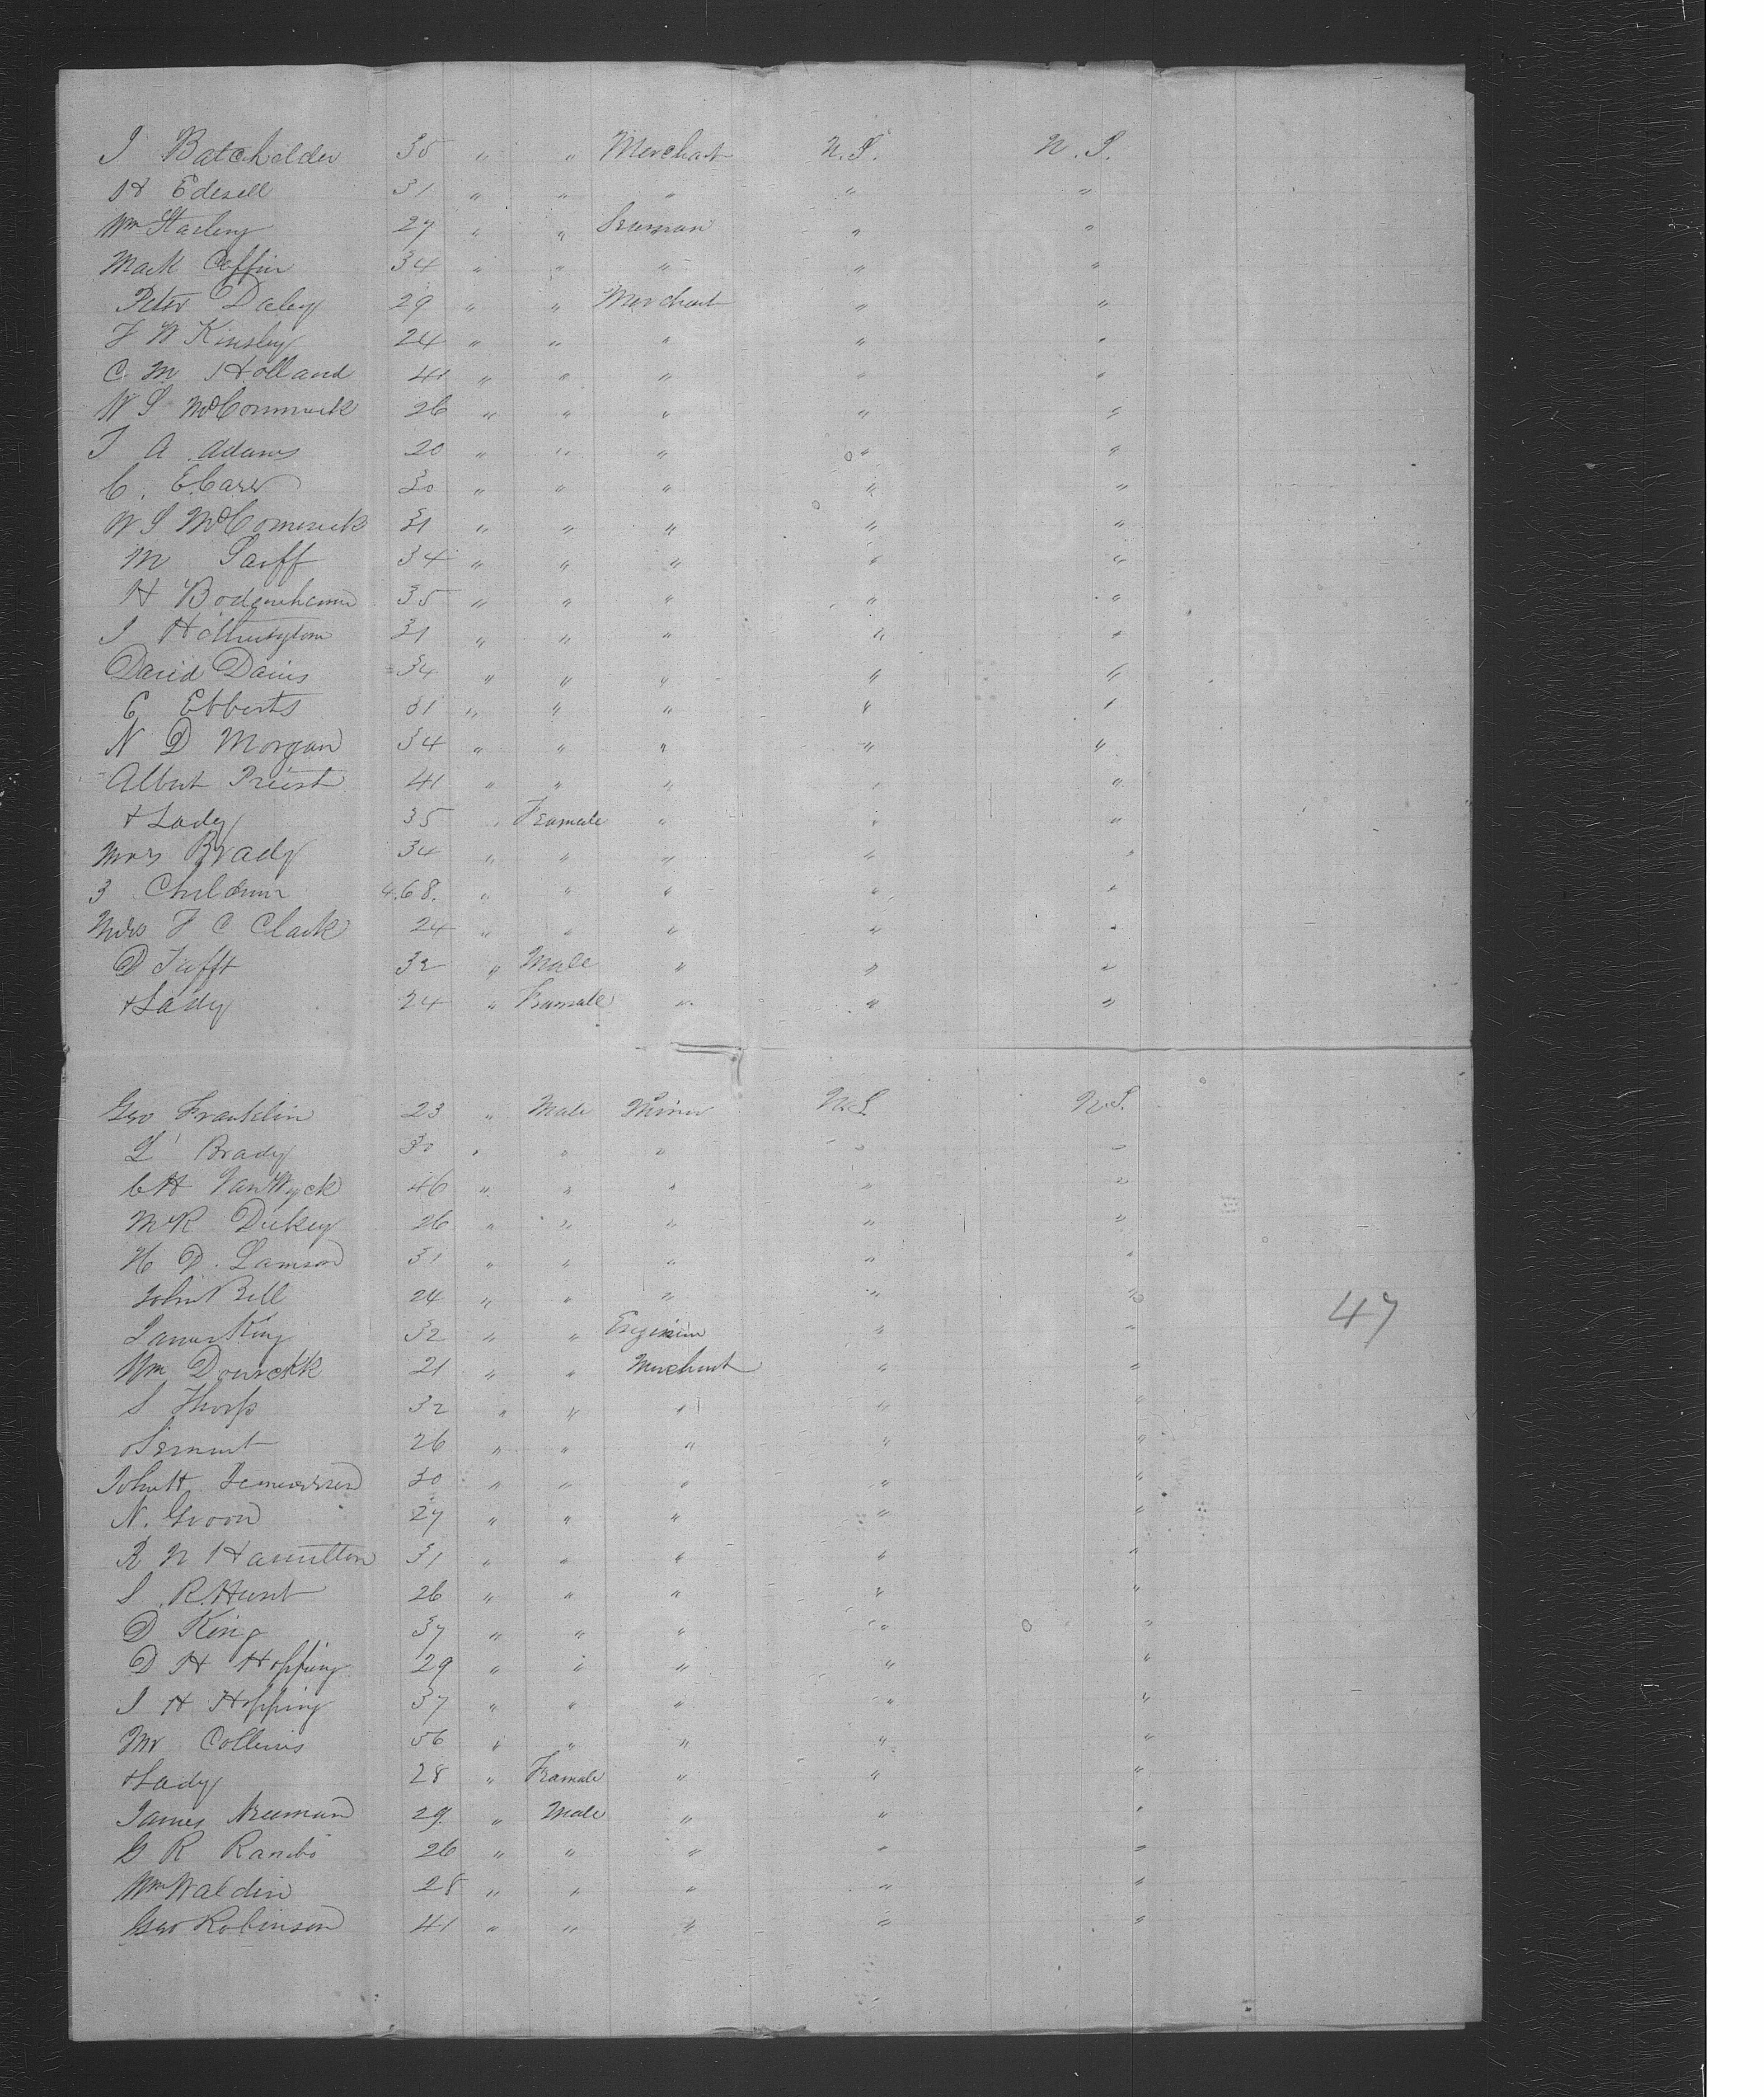 J Batchelder 35 " " Merchant U.S. U.S.
H Edesell 31 " " " " "
Wm Starling 27 " " Seaman " "
Mark Coffin 34 " " " " "
Peter Daley 29 " " Merchant " "
F W Kinsley 24 " " " " "
C. M Holland 41 " " " " "
W S McCormick 26 " " " " "
J A Adams 20 " " " " "
C. E. Carr 30 " " " " "
W S McCormick 31 " " " " "
M Sarff 34 " " " " "
H Bodenheim 35 " " " " "
J 31 " " " " "
David Davis 34 " " " " "
C Ebberts 31 " " " " "
N D Morgan 34 " " " " "
Albert Priest 41 " " " " "
& Lady 35 " Feamale " " "
Mrs Brady 34 " " " " "
3 Children 4.6 8. " " " " "
Mrs F C Clark 24 " " " " "
D Tufft 32 " Male " " "
& Lady 24 " Feamale " " "
Geo Franklin 23 " Male Miner U.S. U.S.
L Brady 30 " " " " "
C H Van Wyck 46 " " " " "
M R Dickey 26 " " " " "
H D. Lamson 31 " " " " "
John Bell 24 " " " " "
47
James King 32 " " Engineer " "
Wm 21 " " Merchant " "
S Thorp 32 " " " " "
26 " " " " "
John H 30 " " " " "
N. 27 " " " " "
R N Hamilton 31 " " " " "
S. R. Hunt 26 " " " " "
D King 37 " " " " "
D H Hopping 29 " " " " "
J H Hopping 37 " " " " "
Mr Collins 56 " " " " "
& Lady 28 " Feamale " " "
James Neuman 29 " Male " " "
G R Rambo 26 " " " " "
Wm Waldin 28 " " " " "
Geo Robinson 41 " " " " "